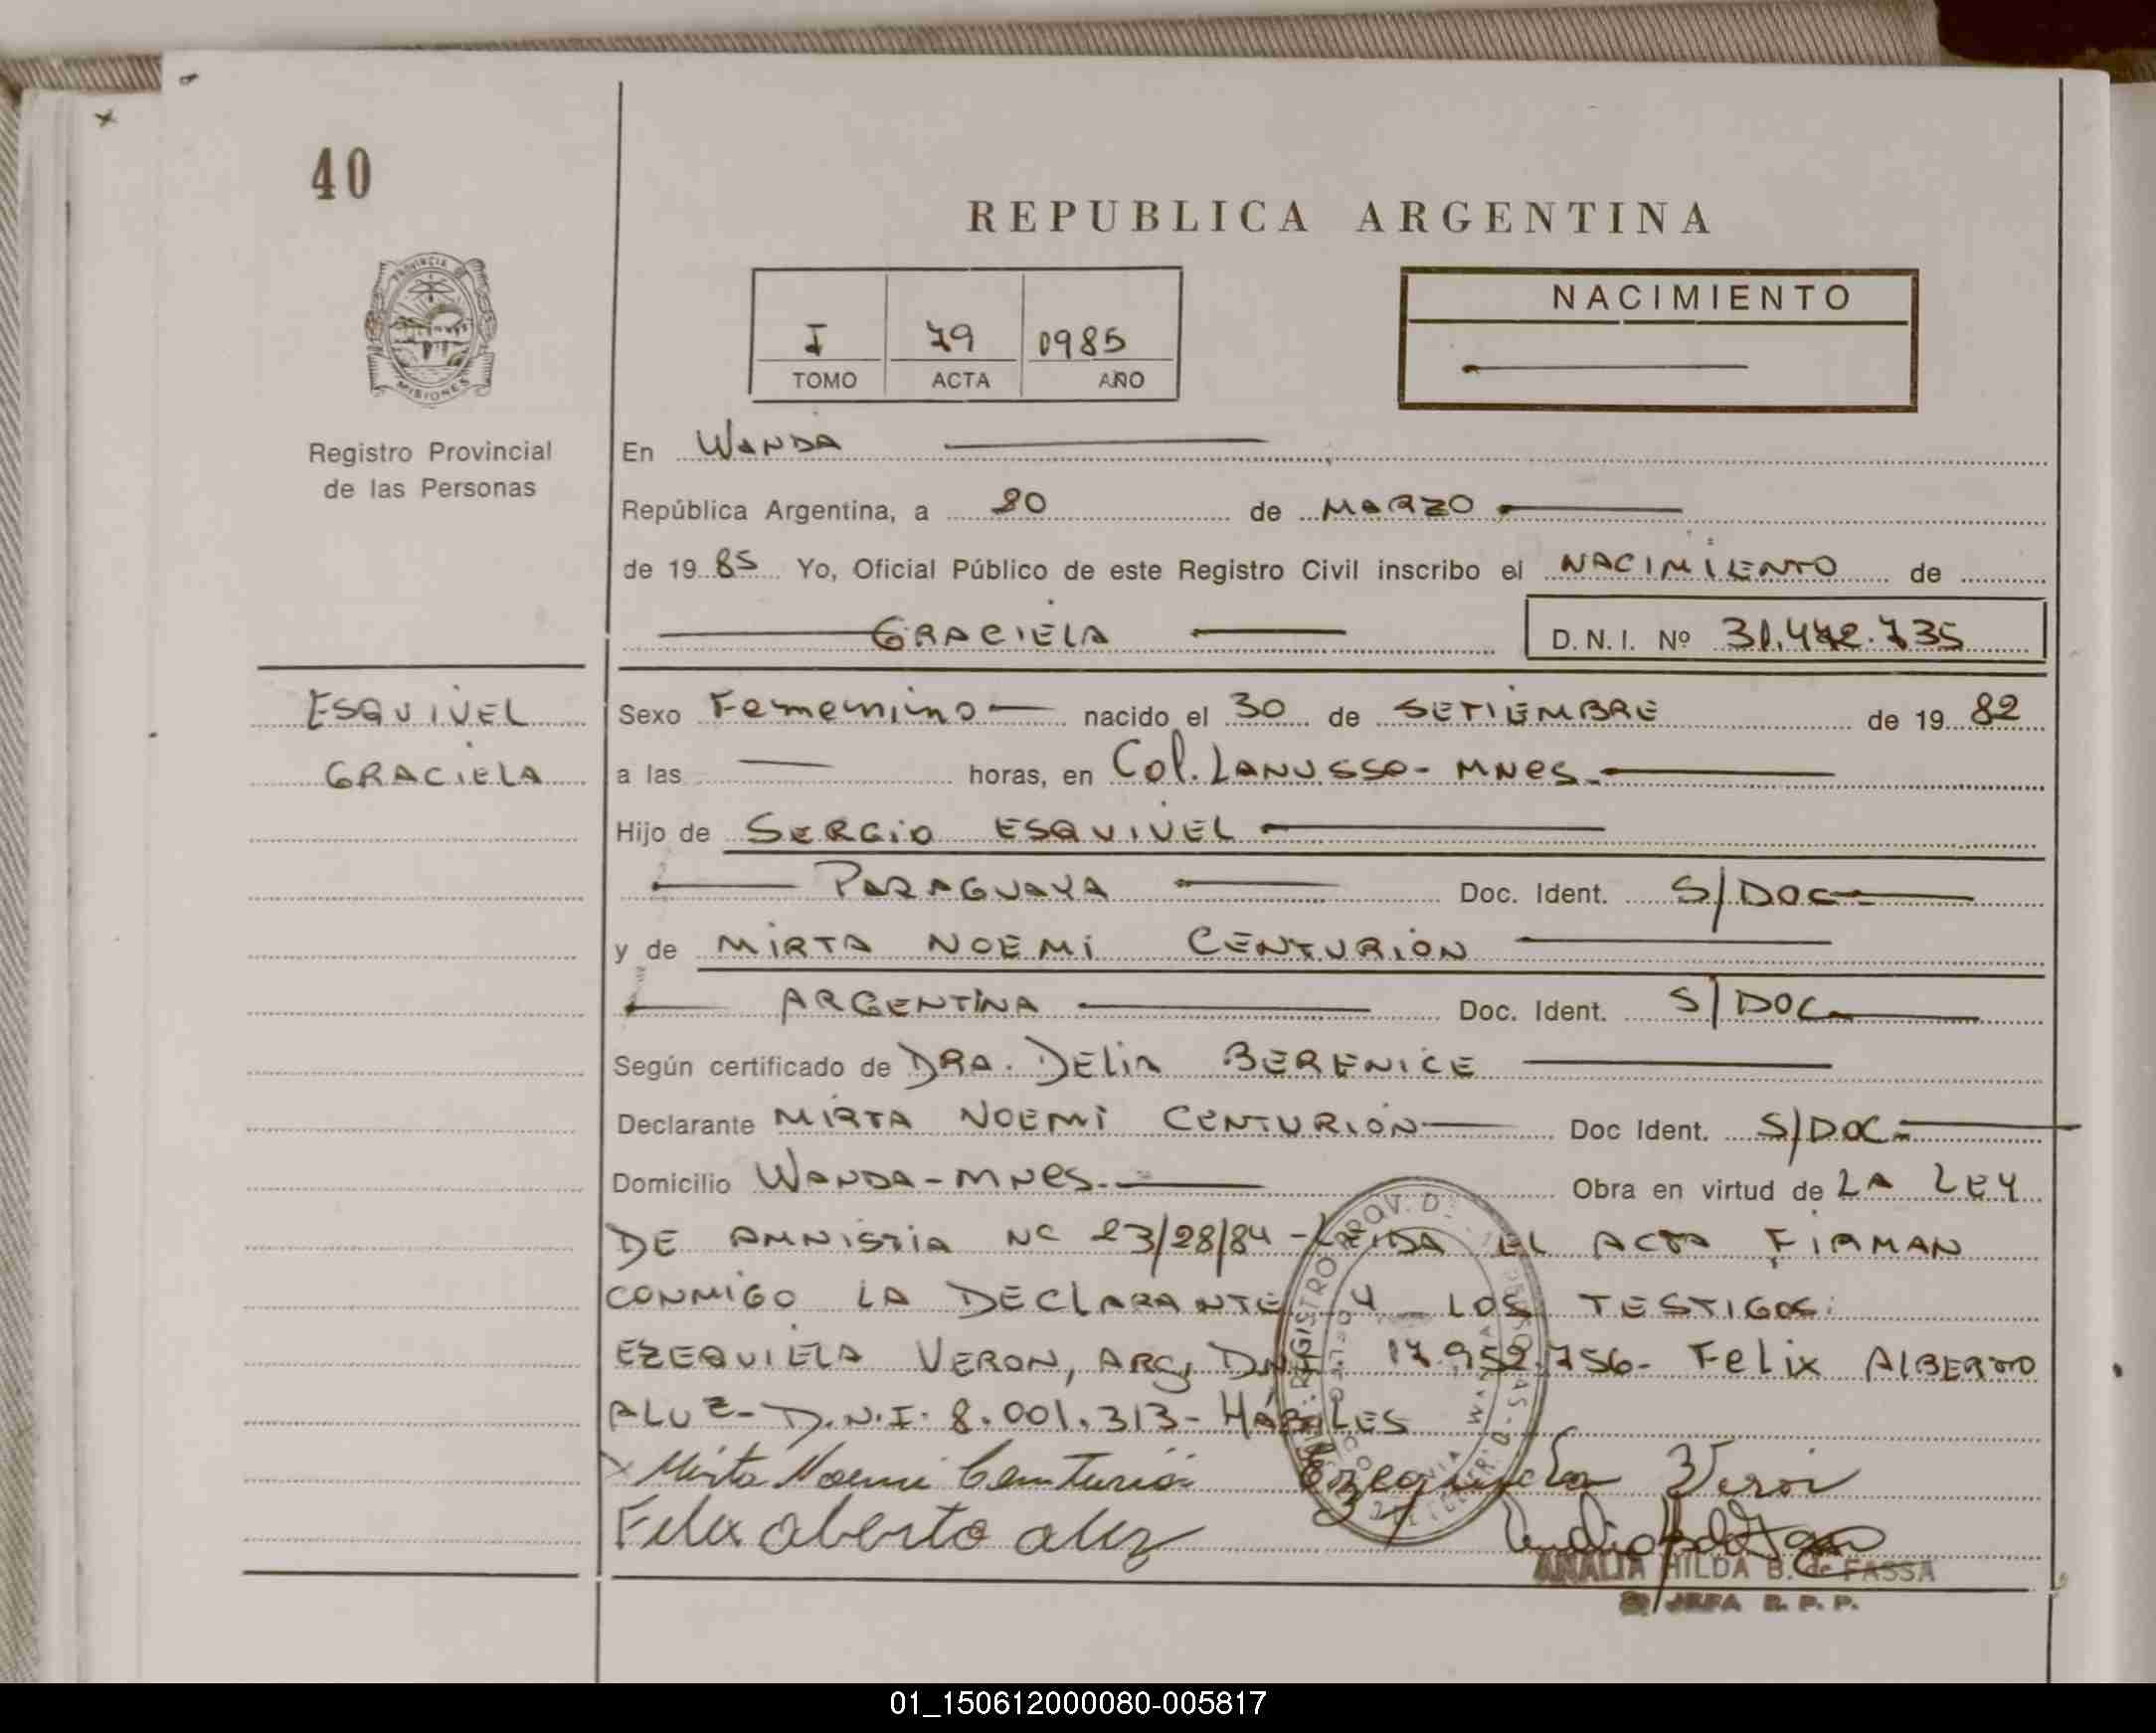 40
REPUBLICA ARGENTINA
PROVINCIA DE
MISIONES
NACIMIENTO
I 79 0985
TOMO ACTA AÑO
Registro Provincial
de las Personas
En WANDA
República Argentina, a 20 de MARZO
de 19 85 Yo, Oficial Público de este Registro Civil inscribo el NACIMIENTO de
GRACIELA D.N.I. Nº
ESQUIVEL
GRACIELA
Sexo Femenino nacido el 30 de SETIEMBRE de 19 82
a las horas, en Col. LANUSSE - MNES.
Hijo de SERGIO ESQUIVEL
PARAGUAYA Doc. Ident. S/DOC
y de MIRTA NOEMI CENTURION
ARGENTINA Doc. Ident. S/DOC
Según certificado de DRA. DELIA BERENICE
Declarante MIRTA NOEMI CENTURION Doc Ident. S/DOC
Domicilio WANDA - MNES. Obra en virtud de LA LEY
DE AMNISTIA Nº 23/28/84 - LEIDA EL ACTA FIRMAN
CONMIGO LA DECLARANTE Y LOS TESTIGOS:
EZEQUIELA VERON, ARG, DNI 17.952.756- Felix ALBERTO
ALUZ- D.N.I. 8.001.313- HÁBILES
x Mirta Noemi Centurión Ezequiela Veron
Felix alberto aluz
ANALIA HILDA B. de FASSA
JEFA R. P. P.
01_150612000080-005817